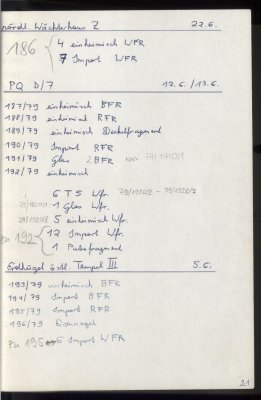 nördl. Wächterhaus Z 22.6.
186 4 einheimisch WFR
7 Import WFR
PQ D/7 12.6./13.6.
187/79 einheimisch BFR
188/79 einheimisch RFR
189/79 einheimisch Deckelfragment
190/79 Import RFR
191/79 Glas 2 BFR
192/79 einheimisch
6 TS Wfr.
1 Glas Wfr.
5 einheimisch Wfr.
zu 192 12 Import Wfr.
1 Putzfragment
Erdhügel östl. Tempel III 5.6.
193/79 einheimisch BFR
194/79 Import BFR
195/79 Import RFR
196/79 Eisennagel
zu 195 6 Import WFR
21